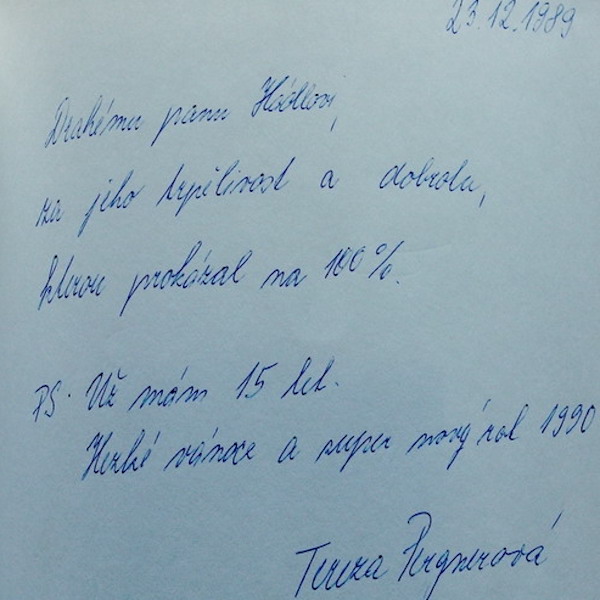 23.12.1989
Drahému panu Hádlovi,
za jeho trpělivost a dobrotu,
kterou prokázal na 100%.
PS. Už mám 15 let.
Hezké vánoce a super nový rok 1990
Tereza Pergnerová